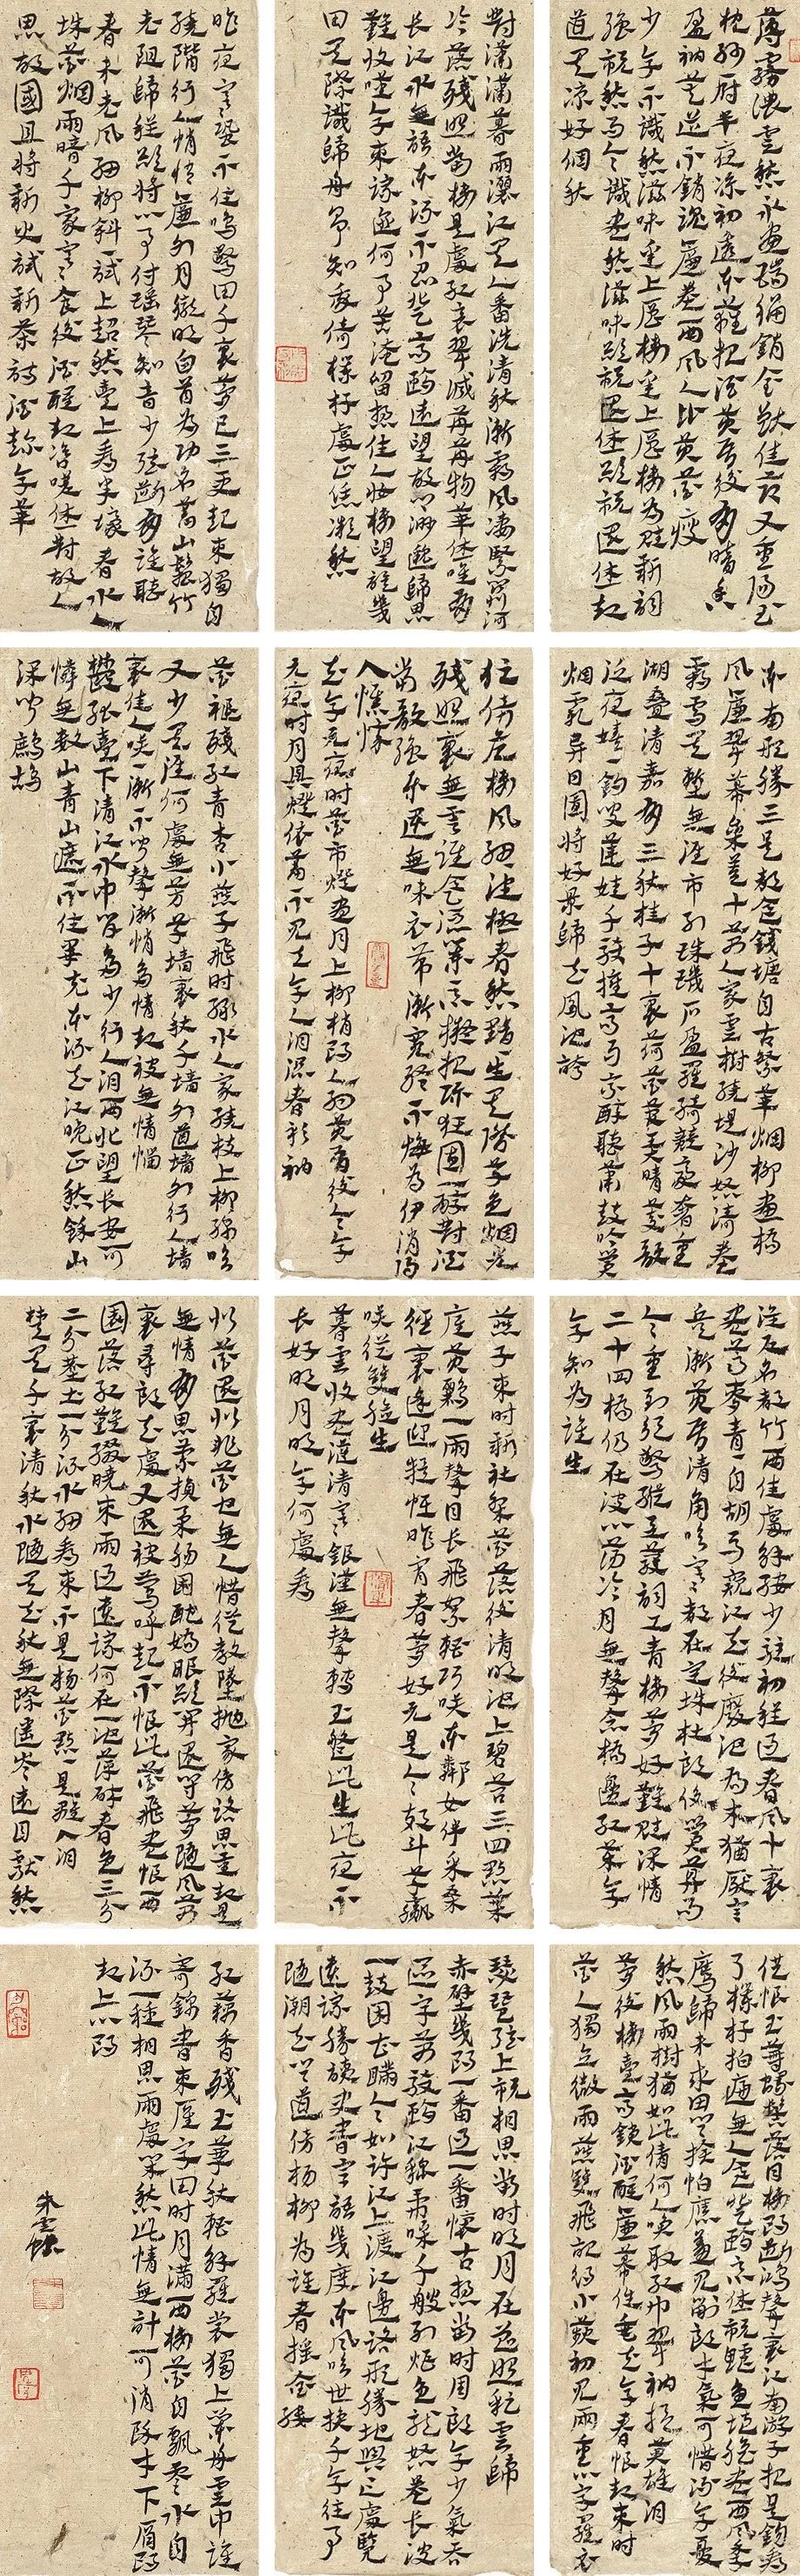 薄霧濃雲愁永晝瑞腦銷金獸佳節又重陽玉
枕紗厨半夜涼初透東籬把酒黃昏後有暗香
盈袖莫道不銷魂簾卷西風人比黃花瘦
少年不識愁滋味愛上層樓愛上層樓為賦新詞
強說愁而今識盡愁滋味欲說還休欲說還休却
道天涼好個秋
對瀟瀟暮雨灑江天一番洗清秋漸霜風凄緊關河
冷落殘照當樓是處紅衰翠減苒苒物華休唯有
長江水無語東流不忍登高臨遠望故鄉渺邈歸思
難收嘆年來蹤跡何事苦淹留想佳人妝樓望誤幾
回天際識歸舟爭知我倚欄杆處正恁凝愁
昨夜寒蛩不住鳴驚回千裏夢已三更起來獨自
繞階行人悄悄簾外月朧明白首為功名舊山松竹
老阻歸程欲將心事付瑤琴知音少弦斷有誰聽
春未老風細柳斜斜試上超然臺上看半壕春水一
城花烟雨暗千家寒食後酒醒却咨嗟休對故人
思故國且將新火試新茶詩酒趁年華
東南形勝三吳都會錢塘自古繁華烟柳畫橋
風簾翠幕參差十萬人家雲樹繞堤沙怒濤卷
霜雪天塹無涯市列珠璣戶盈羅綺競豪奢重
湖疊清嘉有三秋桂子十裏荷花羌管弄晴菱歌
泛夜嬉嬉釣叟蓮娃千騎擁高牙乘醉聽簫鼓吟賞
烟霞異日圖將好景歸去鳳池誇
佇倚危樓風細細望極春愁黯黯生天際草色烟光
殘照裏無言誰會憑闌意擬把疏狂圖一醉對酒
當歌強樂還無味衣帶漸寬終不悔為伊消得
人憔悴
去年元夜時花市燈如晝月上柳梢頭人約黃昏後今年
元夜時月與燈依舊不見去年人淚濕春衫袖
花褪殘紅青杏小燕子飛時綠水人家繞枝上柳綿吹
又少天涯何處無芳草墻裏秋千墻外道墻外行人墻
裏佳人笑笑漸不聞聲漸悄多情却被無情惱
鬱孤臺下清江水中間多少行人淚西北望長安可
憐無數山青山遮不住畢竟東流去江晚正愁餘山
深聞鷓鴣
淮左名都竹西佳處解鞍少駐初程過春風十裏
盡薺麥青青自胡馬窺江去後廢池喬木猶厭言
兵漸黃昏清角吹寒都在空城杜郎俊賞算而
今重到須驚縱豆蔻詞工青樓夢好難賦深情
二十四橋仍在波心蕩冷月無聲念橋邊紅藥年
年知為誰生
燕子來時新社梨花落後清明池上碧苔三四點葉
底黃鸝一兩聲日長飛絮輕巧笑東鄰女伴采桑
徑裏逢迎疑怪昨宵春夢好元是今朝鬥草贏
笑從雙臉生
暮雲收盡溢清寒銀漢無聲轉玉盤此生此夜不
長好明月明年何處看
似花還似非花也無人惜從教墜拋家傍路思量却是
無情有思縈損柔腸困酣嬌眼欲開還閉夢隨風萬
裏尋郎去處又還被鶯呼起不恨此花飛盡恨西
園落紅難綴曉來雨過遺蹤何在一池萍碎春色三分
二分塵土一分流水細看來不是楊花點點是離人淚
楚天千裏清秋水隨天去秋無際遙岑遠目獻愁
供恨玉簪螺髻落日樓頭斷鴻聲裏江南游子把吳鈎看
了欄杆拍遍無人會登臨意休說鱸魚堪膾盡西風季
鷹歸未求田問舍怕應羞見劉郎才氣可惜流年憂
愁風雨樹猶如此倩何人喚取紅巾翠袖揾英雄淚
夢後樓臺高鎖酒醒簾幕低垂去年春恨却來時
花人獨立微雨燕雙飛記得小蘋初見兩重心字羅衣
琵琶弦上說相思當時明月在曾照彩雲歸
赤壁磯頭一番過一番懷古想當時周郎年少氣吞
區宇萬騎臨江貔虎噪千艘列炬魚龍怒卷長波
一鼓困曹瞞今如許江上渡江邊路形勝地興亡處覽
遺蹤勝讀史書言語幾度東風吹世換千年往事
隨潮去問道傍楊柳為誰春搖金縷
紅藕香殘玉簟秋輕解羅裳獨上蘭舟雲中誰
寄錦書來雁字回時月滿西樓花自飄零水自
流一種相思兩處閑愁此情無計可消除才下眉頭
却上心頭